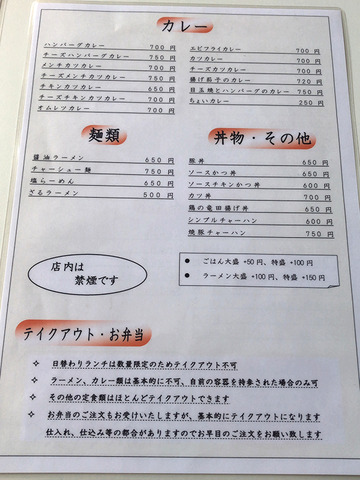 カレー
ハンバーグカレー 700 円
チーズハンバーグカレー 750 円
メンチカツカレー 700 円
チーズメンチカツカレー 750 円
チキンカツカレー 650 円
チーズチキンカツカレー 700 円
オムレツカレー 700 円
エビフライカレー 700 円
カツカレー 700 円
チーズカツカレー 750 円
揚げ茄子のカレー 720 円
目玉焼とハンバーグのカレー 750 円
ちょいカレー 250 円
麺類
醤油ラーメン 650 円
チャーシュー麺 750 円
塩らーめん 650 円
ざるラーメン 500 円
丼物・その他
豚丼 650 円
ソースかつ丼 650 円
ソースチキンかつ丼 600 円
カツ丼 700 円
鶏の竜田揚げ丼 650 円
シンプルチャーハン 600 円
焼豚チャーハン 750 円
店内は
禁煙です
● ごはん大盛 +50円、特盛 +100円
● ラーメン大盛 +100円、特盛 +150円
テイクアウト・お弁当
✧ 日替わりランチは数量限定のためテイクアウト不可
✧ ラーメン、カレー類は基本的に不可、自前の容器を持参された場合のみ可
✧ その他の定食類はほとんどテイクアウトできます
✧ お弁当のご注文もお受けいたしますが、基本的にテイクアウトになります
仕入れ、仕込み等の都合がありますのでお早目のご注文をお願い致します